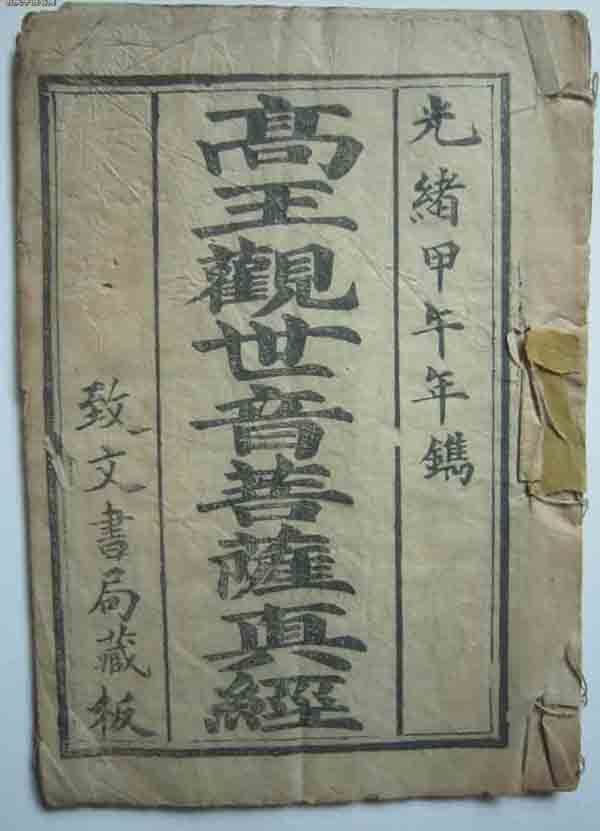 光緒甲午年鐫
髙王觀世音菩薩真經
致文書局藏板